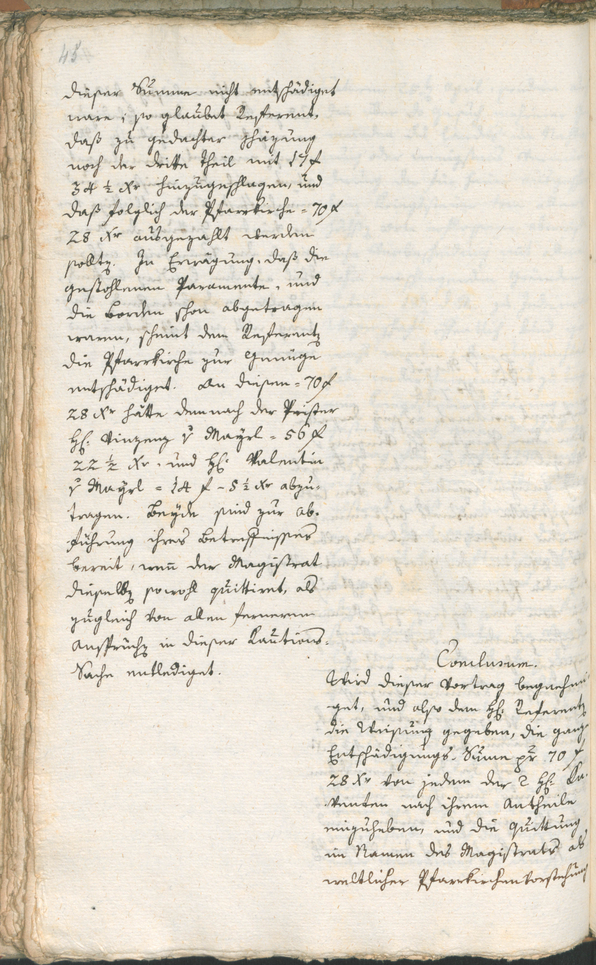 48
dieser Summe nicht entschädiget
ware; so glaubet Referent,
daß zu gedachter Schäzung
noch der dritte Theil mit 17 f
34 ½ Xr hinzugeschlagen, und
daß folglich der Pfarrkirche = 70 f
28 Xr ausgezahlt werden
sollte. In Erwägung, daß die
gestohlenen Paramente, und
die Borden schon abgetragen
waren, scheint dem Referenten
die Pfarrkirche zur Genüge
entschädiget. An diesen = 70 f
28 Xr hätte demnach der Priester
H: Vinzenz v Mayrl = 56 f
22 ½ Xr, und H: Valentin
v Mayrl = 14 f - 5 ½ Xr abzu-
tragen. Beyde sind zur Ab-
führung ihres Betreffnisses
bereit, wenn der Magistrat
dieselbe sowohl quittiret, als
zugleich von allen fernern
Ansprüchen in dieser Kautions-
Sache entlediget.
Conclusum.
Wird dieser Vortrag begnehmi-
get, und also dem H: Referenten
die Weisung gegeben, die ganze
Entschädigungs-Summe pr 70 f
28 Xr von jedem der 2 H:
nach ihrem Antheile
einzuheben, und die Quittung
im Namen des Magistrats als
weltlicher Pfarrkirchenvorstehung